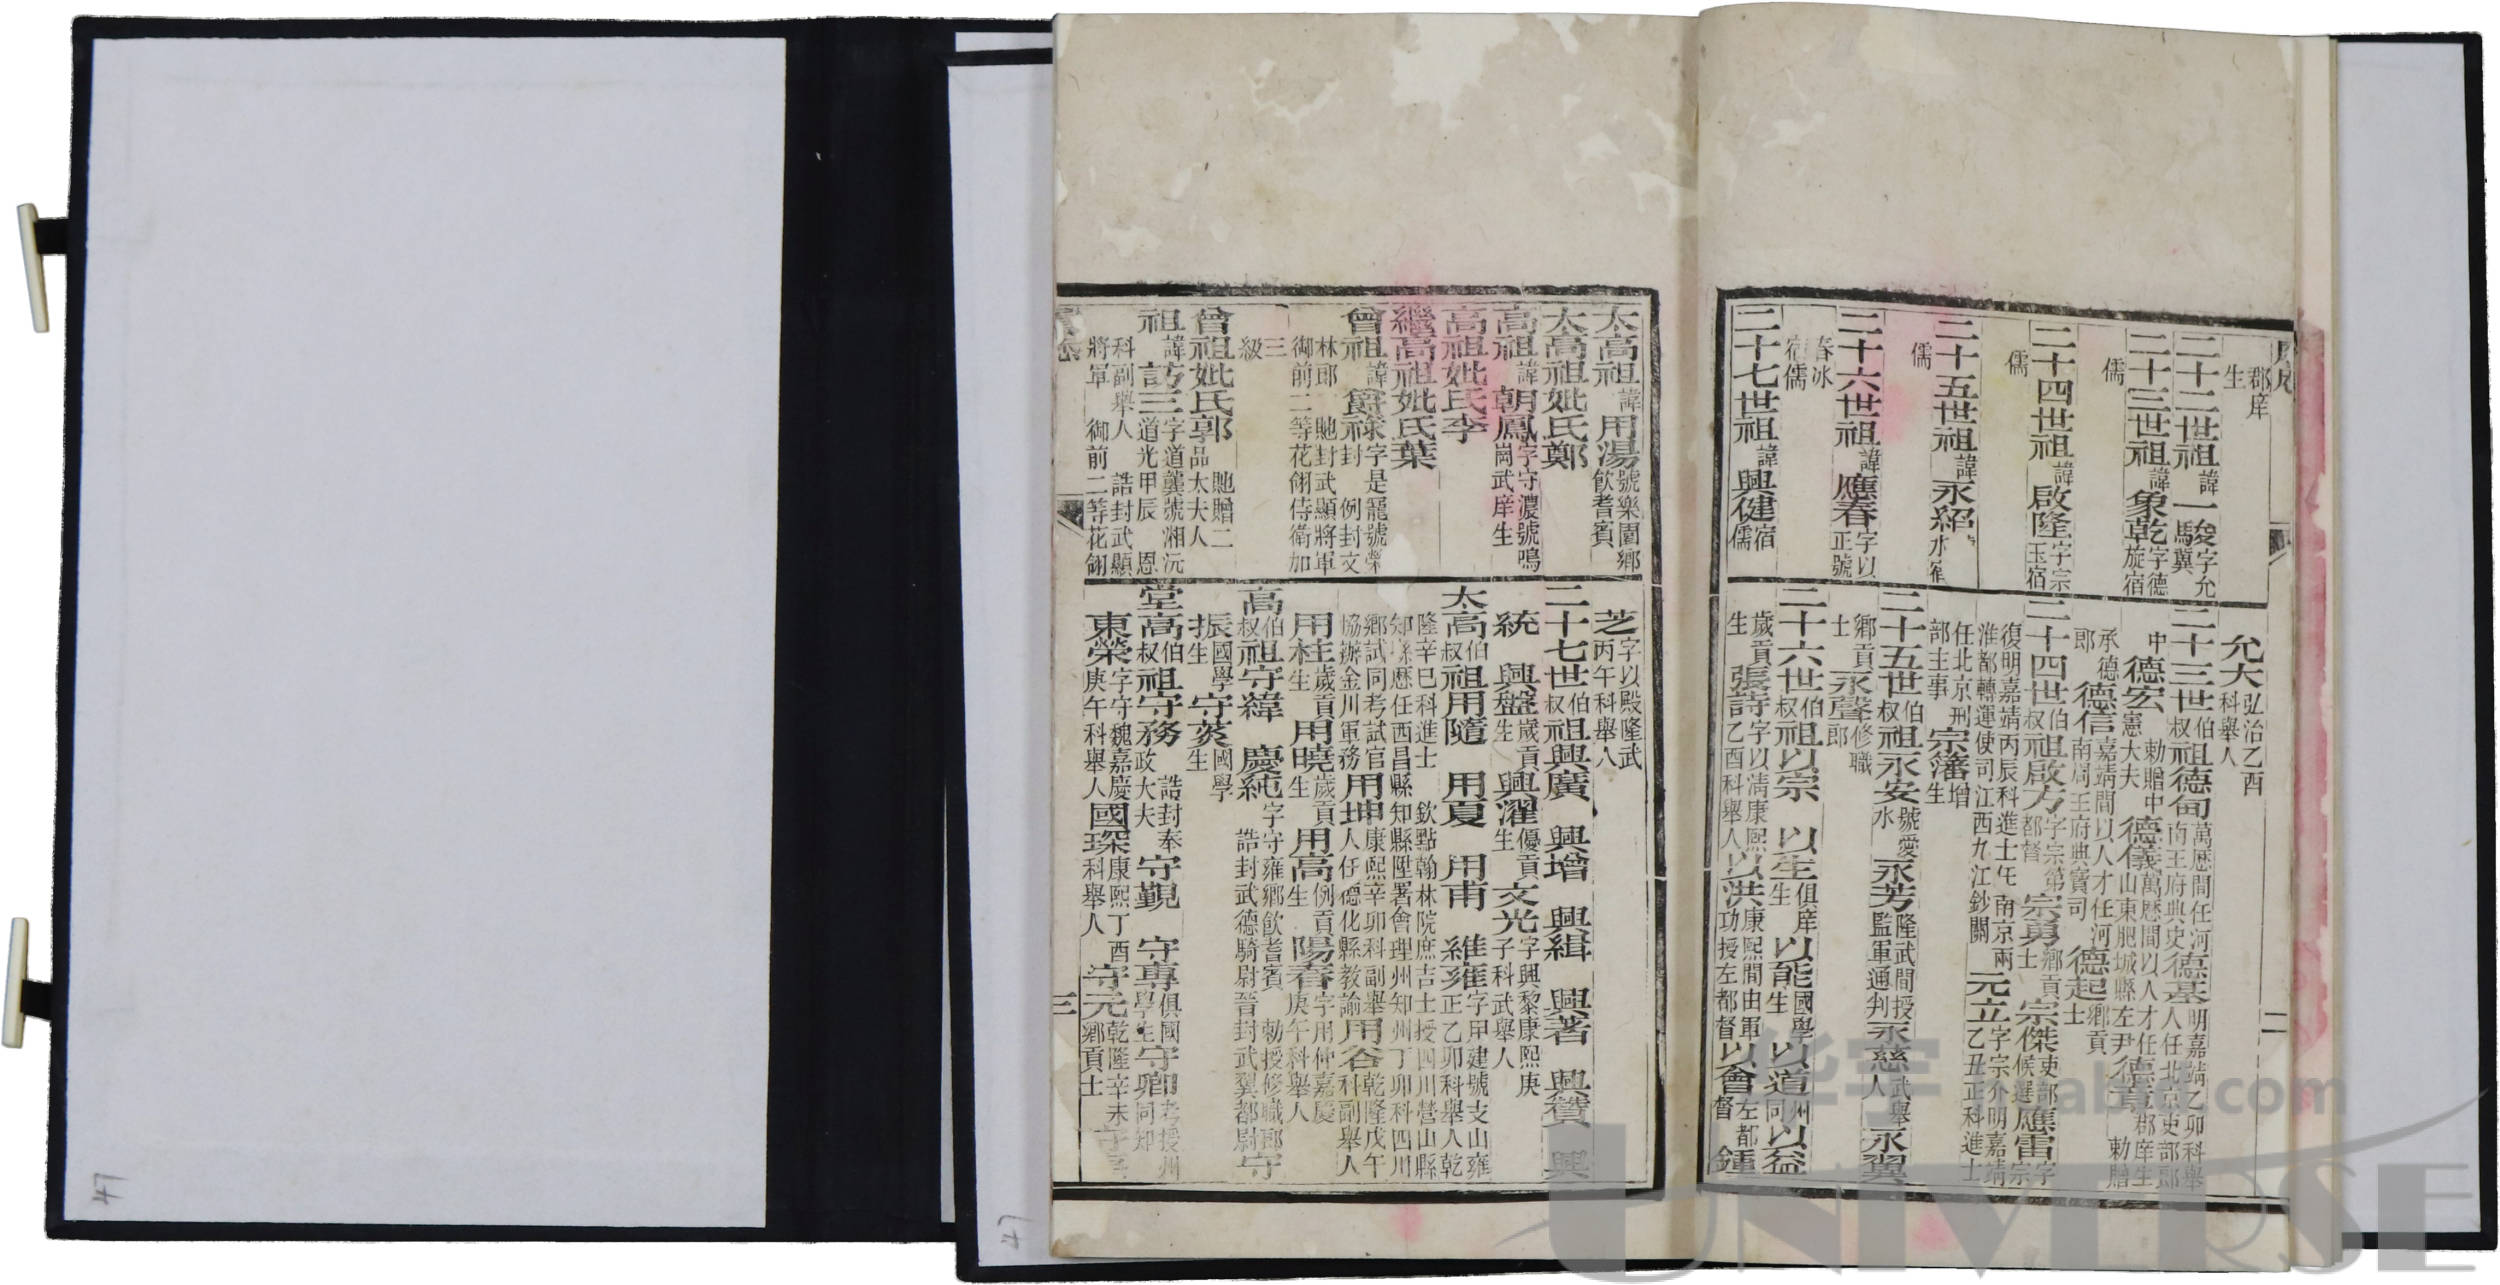 郡庠
生
二十二世祖諱一駿字允
驥
二十三世祖諱象乾字德旋宿
儒
二十四世祖諱啟隆字宗玉宿
儒
二十五世祖諱永紹
儒
二十六世祖諱應春字以正號
春冰
宿儒
二十七世祖諱興健宿儒
允大弘治乙酉科舉人
二十三世伯叔祖德甸萬歷間任河南王府典史德基明嘉靖乙卯科舉人任北京吏部郎
中德宏勅贈中憲大夫德儀萬歷間以人才任山東肥城縣左尹德章郡庠生勅贈
承德郎德信嘉靖間以人才任河南周王府典寶司德起鄉貢士
二十四世伯叔祖啟方字宗第都督宗勇鄉貢士宗傑吏部候選應雷字宗
復明嘉靖丙辰科進士任南京兩淮都轉運使司江西九江鈔關元立字宗介明嘉靖乙丑正科進士
任北京刑部主事宗藩增生
二十五世伯叔祖永安號愛水永芳隆武間授監軍通判永慈武舉人永翼
鄉貢士永聲修職郎
二十六世伯叔祖以宗 以生俱庠生以能國學生以道州同以益
歲貢生張詩字以清康熙乙酉科舉人以洪康熙間由軍功授左都督以會左都督鍾
二
太高祖諱用湯號樂圃鄉飲耆賓
太高祖妣氏鄭
高祖諱朝鳳字守濃號鳴崗武庠生
高祖妣氏李
繼高祖妣氏葉
曾祖諱爵祿字是寵號榮封 例封文
林郎 貤封武顯將軍
御前二等花翎侍衛加
三級
曾祖妣氏郭貤贈二品太夫人
祖諱訪三字道龔號湘沅道光甲辰 恩
科副舉人 誥封武顯
將軍 御前二等花翎
芝字以殿隆武丙午科舉人
二十七世伯叔祖興廣 興增 興緝 興著 興贊 興
統 興盤歲貢生興濯優貢生文光字興黎康熙庚子科武舉人
太高伯叔祖用隨 用夏 用甫 維雍字用建號支山雍正乙卯科舉人乾
隆辛巳科進士 欽點翰林院庶吉士授四川營山縣
知縣歷任西昌縣知縣陞署會理州知州丁卯科四川
鄉試同考試官協辦金川軍務用坤康熙辛卯科副舉人任德化縣教諭用谷乾隆戊午科副舉人
用柱歲貢生用曉歲貢生用高例貢生陽春字用仲嘉慶庚午科舉人
高伯叔祖守緯 慶純字守雍鄉飲耆賓 勅授修職郎 誥封武德騎尉晉封武翼都尉守
振國學生守荄國學生
堂高伯叔祖守務誥封奉政大夫守覲 守專俱國學生守卿考授州同知
東榮字守魏嘉慶庚午科舉人國琛康熙丁酉科舉人守元乾隆辛未鄉貢士
三
47
47
华宇
UNIVERSE